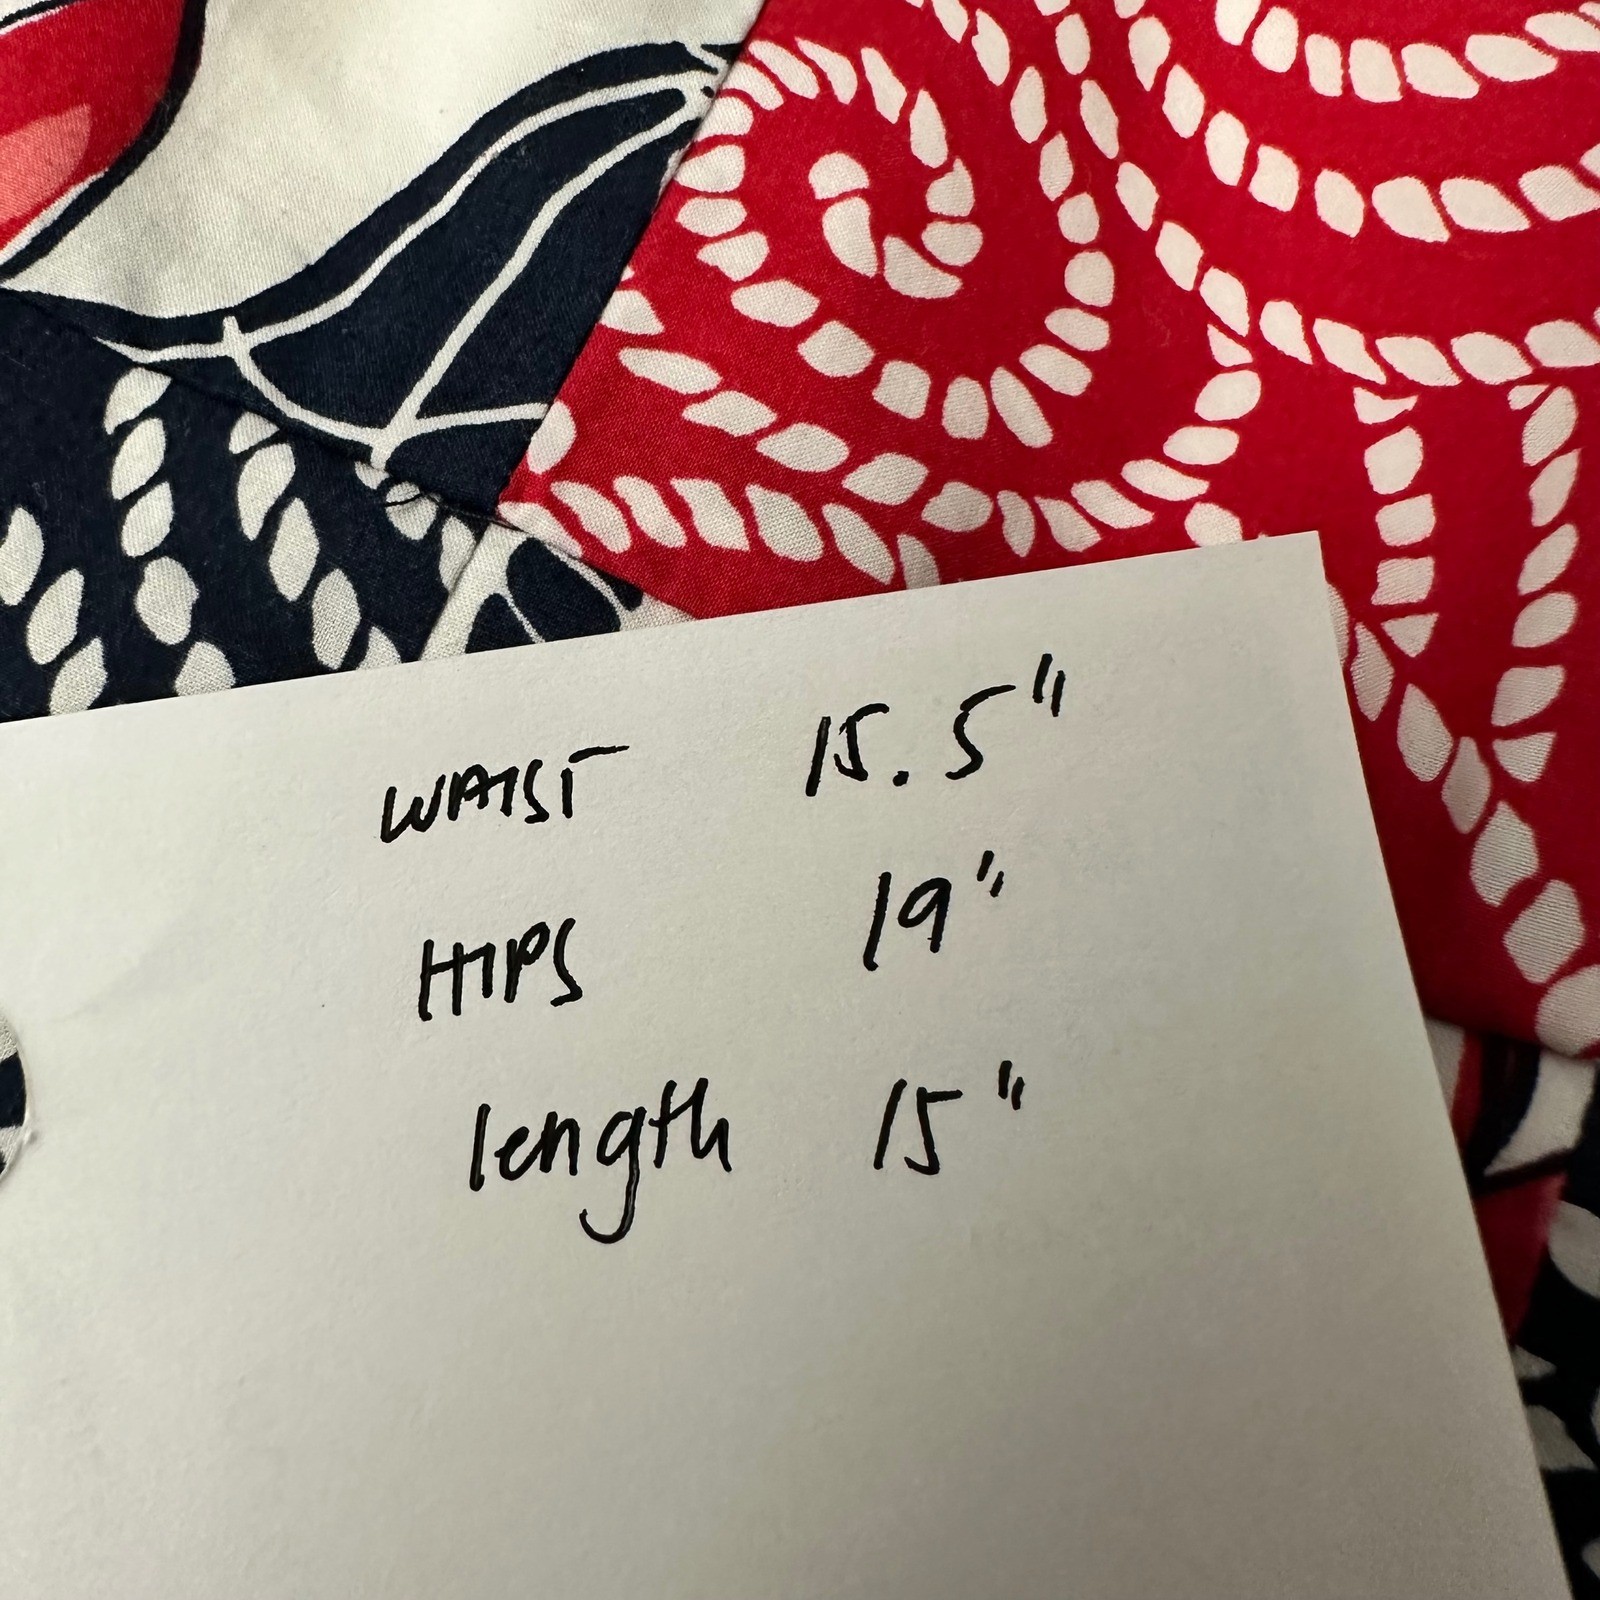 WAIST 15.5"
HIPS 19"
length 15"